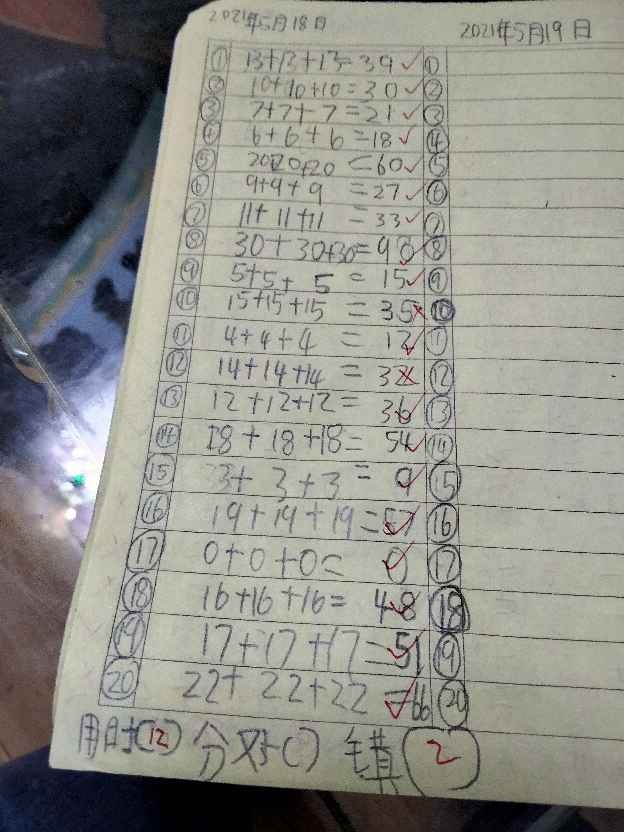 2021年5月18日
2021年5月19日
① 13+13+13=39 ✓ ①
② 10+10+10=30 ✓ ②
③ 7+7+7=21 ✓ ③
④ 6+6+6=18 ✓ ④
⑤ 20+20+20=60 ✓ ⑤
⑥ 9+9+9=27 ✓ ⑥
⑦ 11+11+11=33 ✓ ⑦
⑧ 30+30+30=90 ✓ ⑧
⑨ 5+5+5=15 ✓ ⑨
⑩ 15+15+15=35 × ⑩
⑪ 4+4+4=12 ✓ ⑪
⑫ 14+14+14=32 × ⑫
⑬ 12+12+12=36 ✓ ⑬
⑭ 18+18+18=54 ✓ ⑭
⑮ 3+3+3=9 ✓ ⑮
⑯ 19+19+19=57 ✓ ⑯
⑰ 0+0+0=0 ✓ ⑰
⑱ 16+16+16=48 ✓ ⑱
⑲ 17+17+17=51 ✓ ⑲
⑳ 22+22+22=66 ✓ ⑳
用时(12)分对( )错(2)